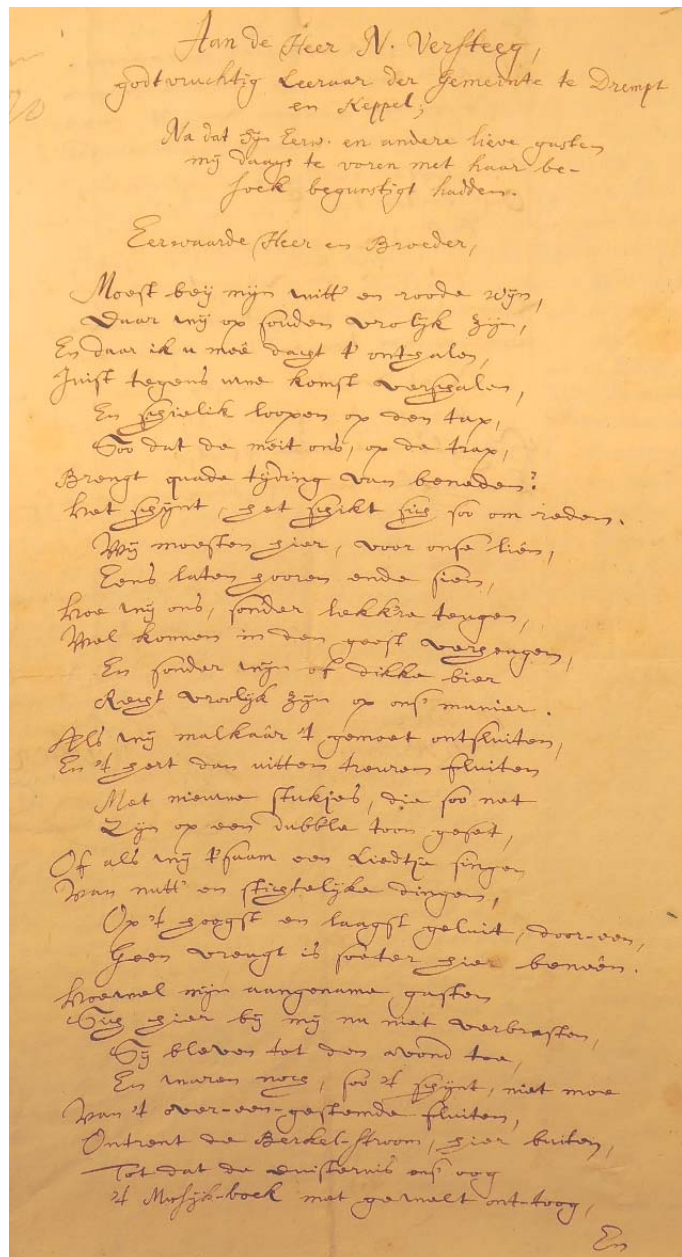 Aan de Heer N. Versteeg,
godtvruchtig Leeraar der Gemeinte te Drempt
en Keppel;
Na dat syn Eerw. en andere lieve gasten
mij daags te voren met haar be-
soek begunstigt hadden.
Eerwaarde Heer en Broeder,
Moest bey mijn witt' en roode wijn,
Daar wij op souden vrolijk zijn,
En daar ik u meê dacht t' onthalen,
Juist tegens uwe komst verschalen,
En schielik loopen op den tap,
Soo dat de meit ons, op de trap,
Brengt quade tijding van beneden?
Het schijnt, het schikt sich soo om reden.
Wij moesten hier, voor onse liên,
Eens laten hooren ende sien,
Hoe wij ons, sonder lekk're teugen,
Wel konnen in den geest verheugen,
En sonder wijn of dikke bier
Recht vroolijk zijn op ons' manier.
Als wij malkaâr 't gemoet ontsluiten,
En 't hert dan uitten treuren fluiten
Met nieuwe stukjes, die soo net
Zijn op een dubb'le toon geset,
Of als wij t'saam een Liedtje singen
Van nutt' en stichtelijke dingen,
Op 't hoogst en laagst geluit, door-een,
Geen vreugt is soeter hier beneên.
Hoewel mijn aangename gasten
Sich hier bij mij nu niet verbrasten,
Sij bleven tot den avond toe,
En waren noch, soo 't schijnt, niet moe
Van 't over-een-gestemde fluiten,
Ontrent de Berkel-stroom, hier buiten,
Tot dat de duisternis ons oog
't Musijk-boek met gewelt ont-toog,
En